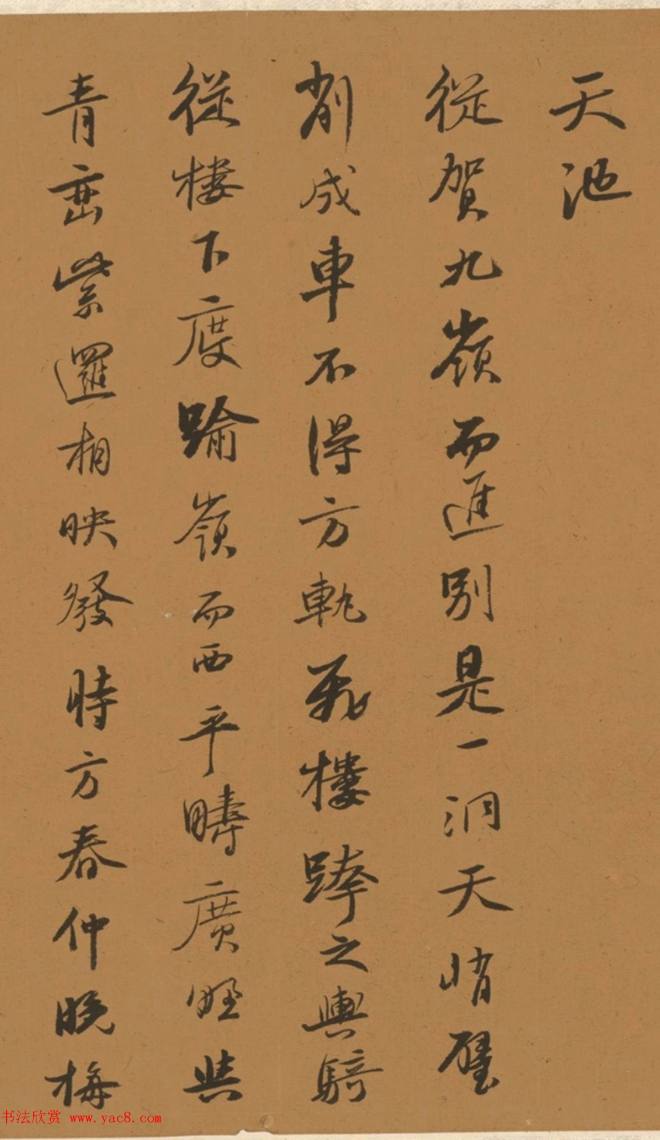 天池
從賀九嶺而進別是一洞天峭壁
削成車不得方軌飛樓跨之輿騎
從樓下度踰嶺而西平疇廣野與
青巒紫邏相映發時方春仲晚梅
书法欣赏 www.yac8.com